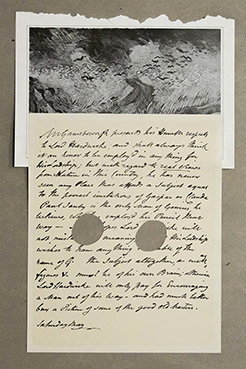 Mr Gainsborough presents his Humble respects
to Lord Hardwicke; and shall always think
it an honor to be employ'd in any thing for
his Lordship; but with regard to real Views
from Nature in this Country, he has never
seen any Place that affords a Subject equal
to the poorest imitations of Gaspar or Claude.
Paul Sanby is the only Man of Genius
employ'd his Pencil that
way
Lord
his Lordship
wishes to have any thing of the
name of G. the Subject altogether, as well as
figures &c must be of his own Brain; otherwise
Lord Hardwicke will only pay for Encouraging
a Man out of his way and had much better
buy a Picture of some of the good old Masters.
Saturday Morg